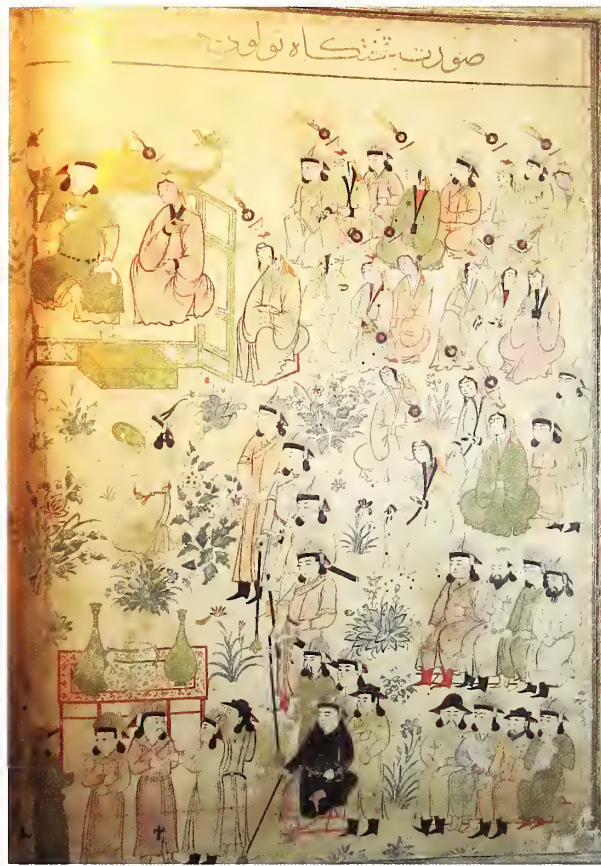 صورت تختکاه تولوی